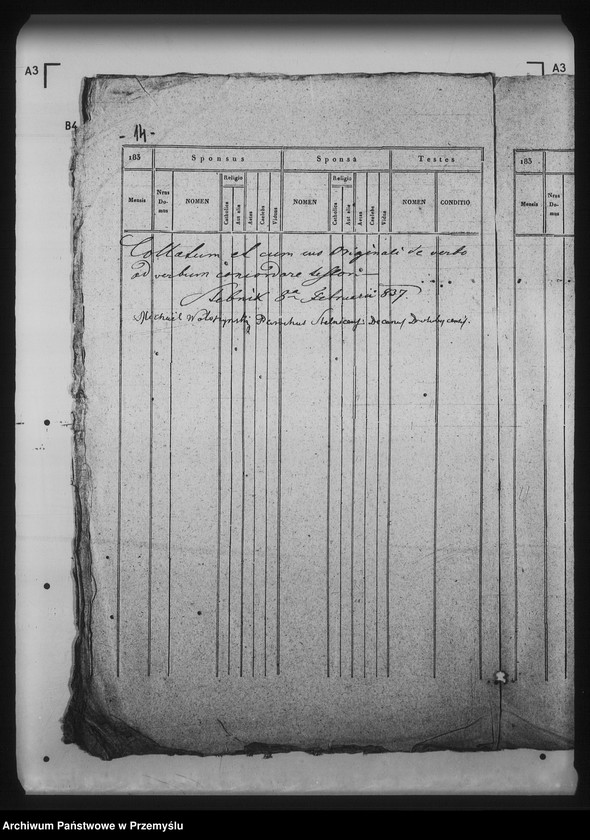 A3
A3
B4
- 14 -
183 Sponsus Sponsa Testes 183
Mensis Nrus Domus NOMEN Religio Catholica Aut alia Aetas Caelebs Viduus NOMEN Religio Catholica Aut alia Aetas Caelebs Vidua NOMEN CONDITIO Mensis Nrus Domus
Collatum et cum suo Originali de verbo
ad verbum concordare testor
Stebnik 8a Februarii 837.
Michael Parochus Decanus
Archiwum Państwowe w Przemyślu